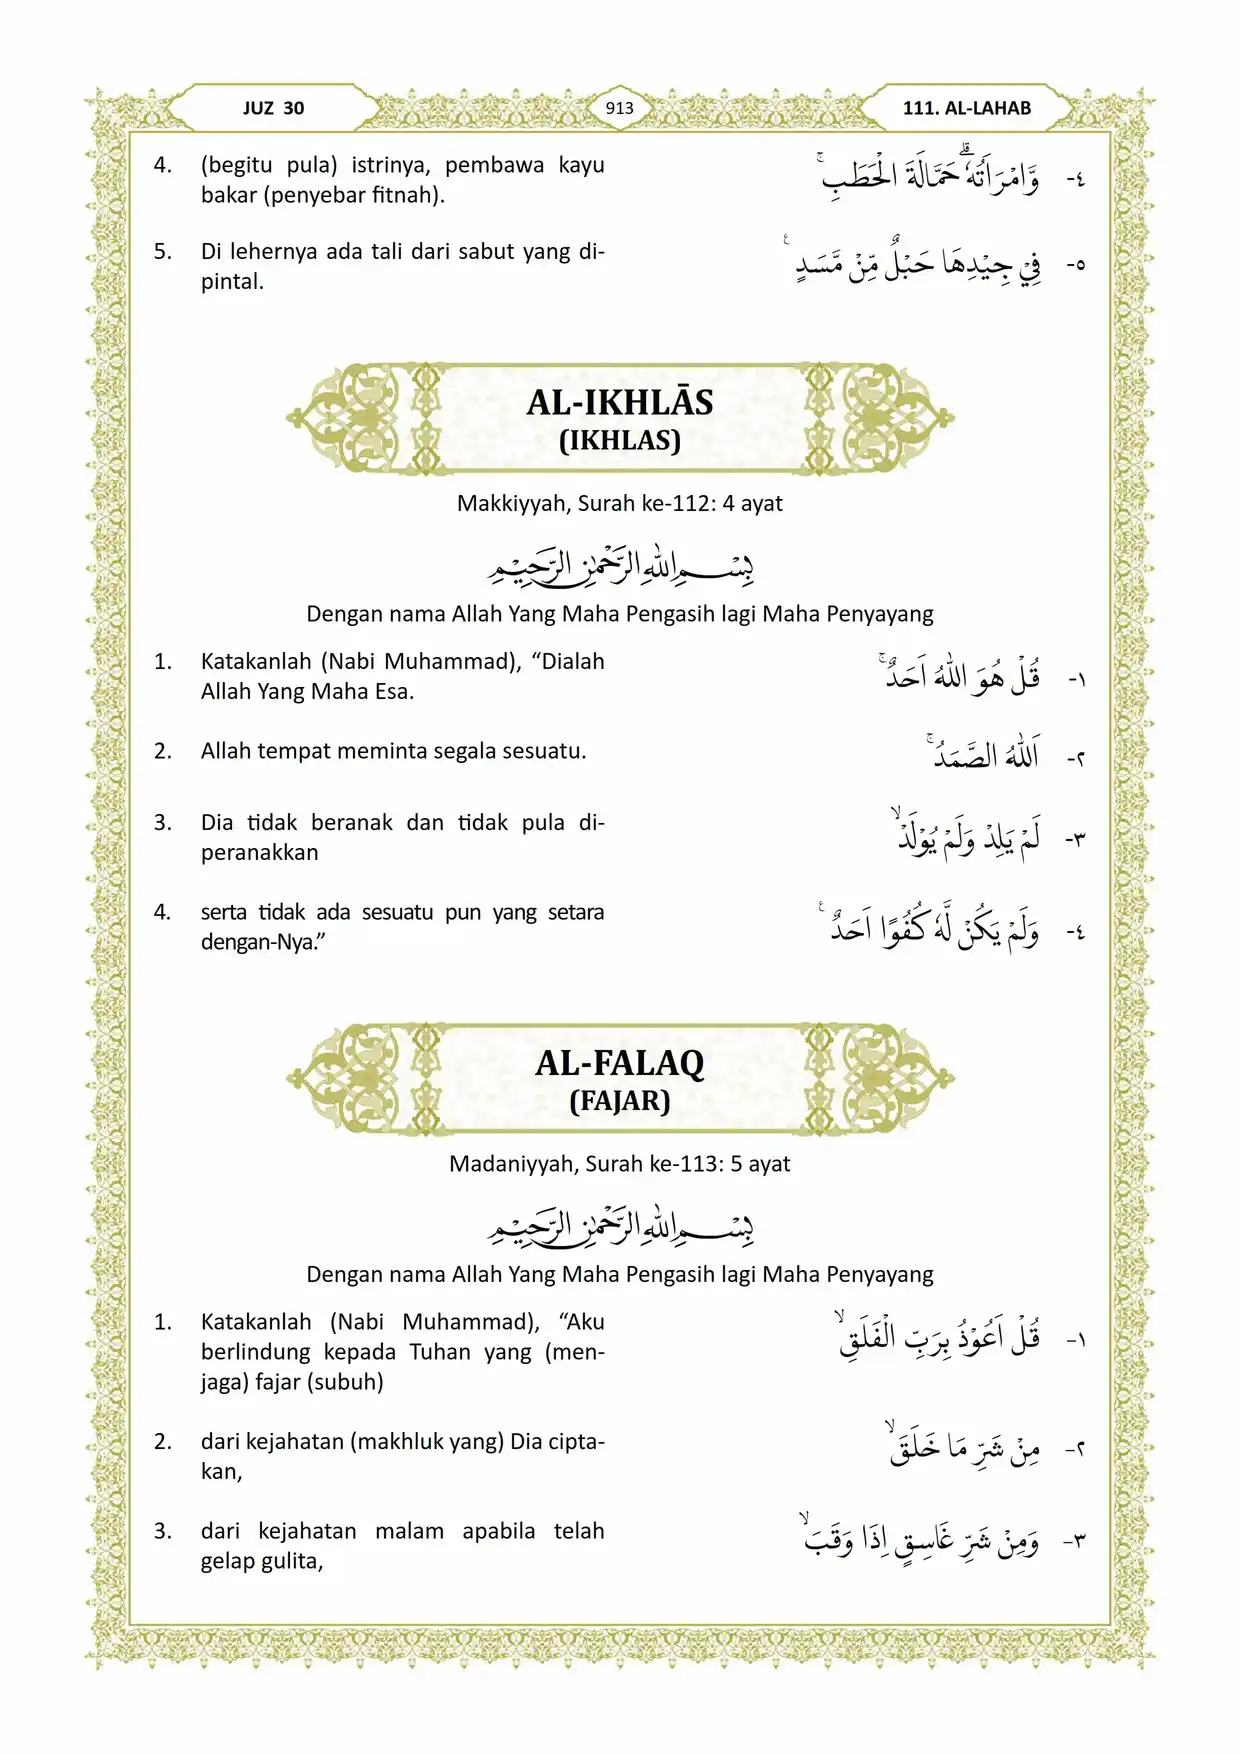 JUZ 30
913
111. AL-LAHAB
4. (begitu pula) istrinya, pembawa kayu
bakar (penyebar fitnah).
٤- وَّامْرَاَتُهٗ ۗحَمَّالَةَ الْحَطَبِۚ
5. Di lehernya ada tali dari sabut yang di-
pintal.
٥- فِيْ جِيْدِهَا حَبْلٌ مِّنْ مَّسَدٍ ࣖ
AL-IKHLĀS
(IKHLAS)
Makkiyyah, Surah ke-112: 4 ayat
بِسْمِ اللّٰهِ الرَّحْمٰنِ الرَّحِيْمِ
Dengan nama Allah Yang Maha Pengasih lagi Maha Penyayang
1. Katakanlah (Nabi Muhammad), “Dialah
Allah Yang Maha Esa.
١- قُلْ هُوَ اللّٰهُ اَحَدٌۚ
2. Allah tempat meminta segala sesuatu.
٢- اَللّٰهُ الصَّمَدُۚ
3. Dia tidak beranak dan tidak pula di-
peranakkan
٣- لَمْ يَلِدْ وَلَمْ يُوْلَدْۙ
4. serta tidak ada sesuatu pun yang setara
dengan-Nya.”
٤- وَلَمْ يَكُنْ لَّهٗ كُفُوًا اَحَدٌ ࣖ
AL-FALAQ
(FAJAR)
Madaniyyah, Surah ke-113: 5 ayat
بِسْمِ اللّٰهِ الرَّحْمٰنِ الرَّحِيْمِ
Dengan nama Allah Yang Maha Pengasih lagi Maha Penyayang
1. Katakanlah (Nabi Muhammad), “Aku
berlindung kepada Tuhan yang (men-
jaga) fajar (subuh)
١- قُلْ اَعُوْذُ بِرَبِّ الْفَلَقِۙ
2. dari kejahatan (makhluk yang) Dia cipta-
kan,
٢- مِنْ شَرِّ مَا خَلَقَۙ
3. dari kejahatan malam apabila telah
gelap gulita,
٣- وَمِنْ شَرِّ غَاسِقٍ اِذَا وَقَبَۙ